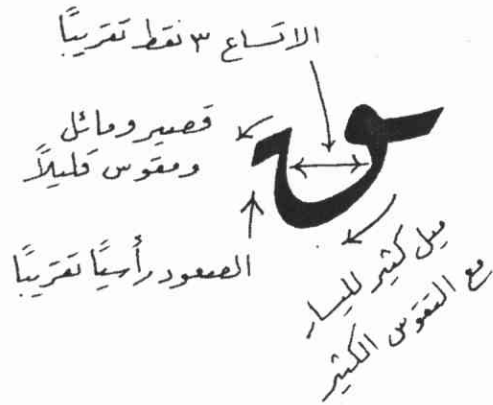 الاتساع ٣ نقط تقريبًا
قصير ومائل
ومقوس قليلًا
الصعود رأسيًا تقريبًا
ميل كثير لليسار
مع التقوس الكثير